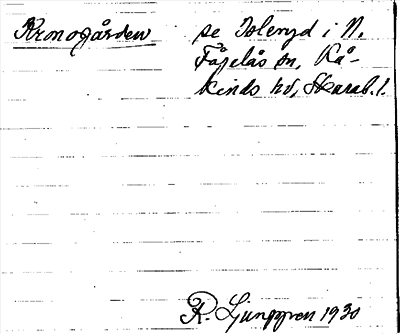 Kronogården se Isleryd i N.
Fågelås sn, Kå-
kinds hd, Skarab. l.
R. Ljunggren 1930